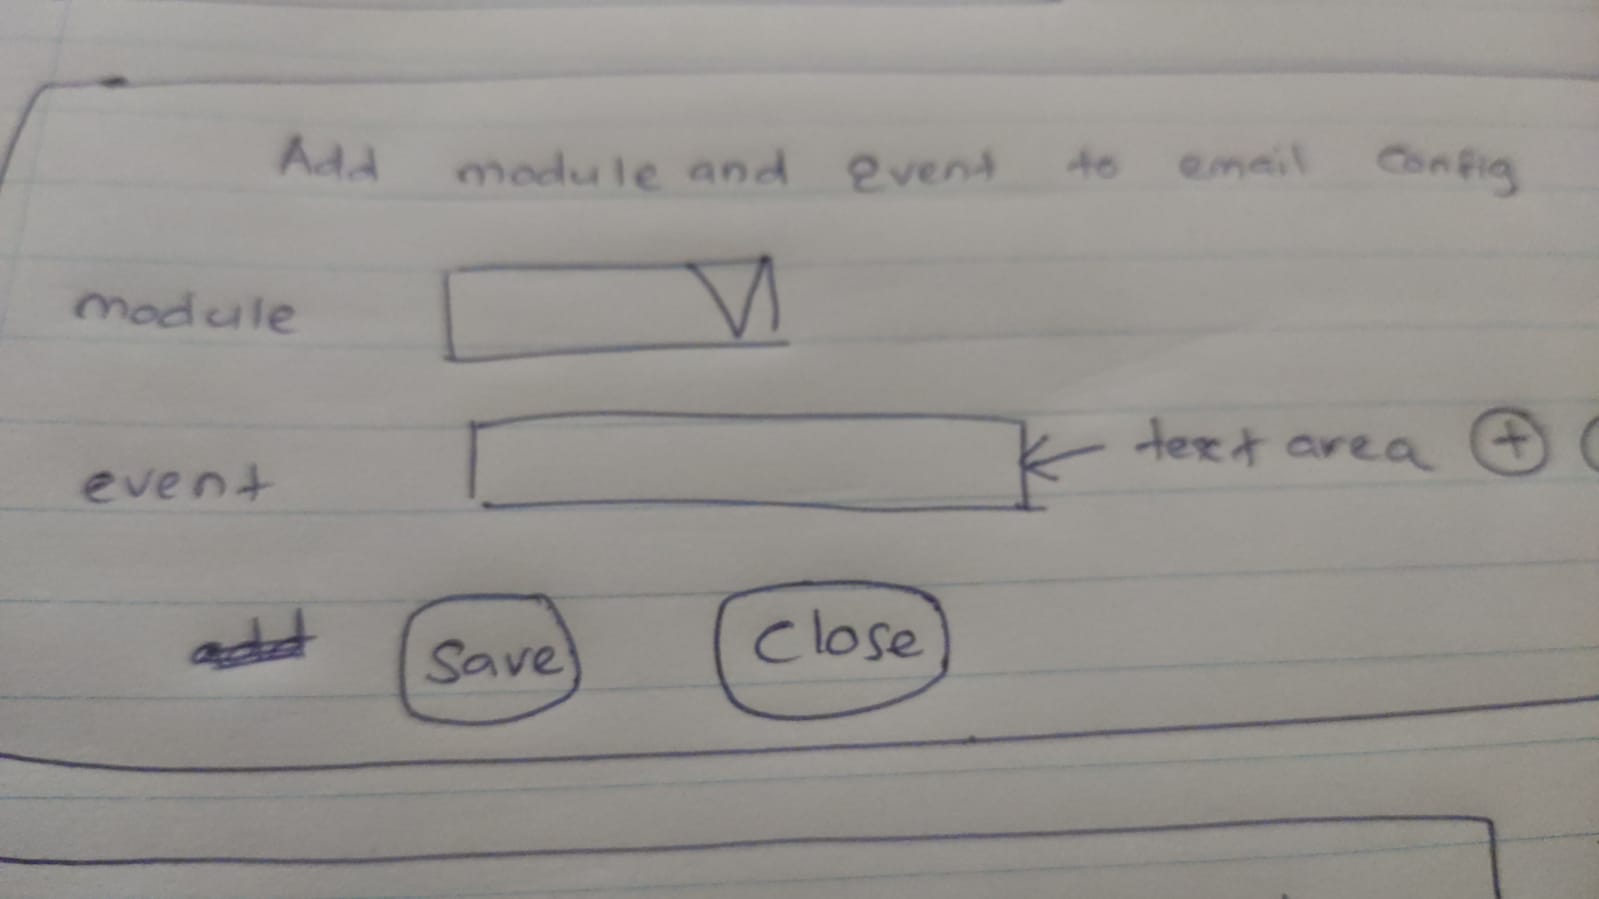 Add module and event to email config
module
event
text area +
add Save Close